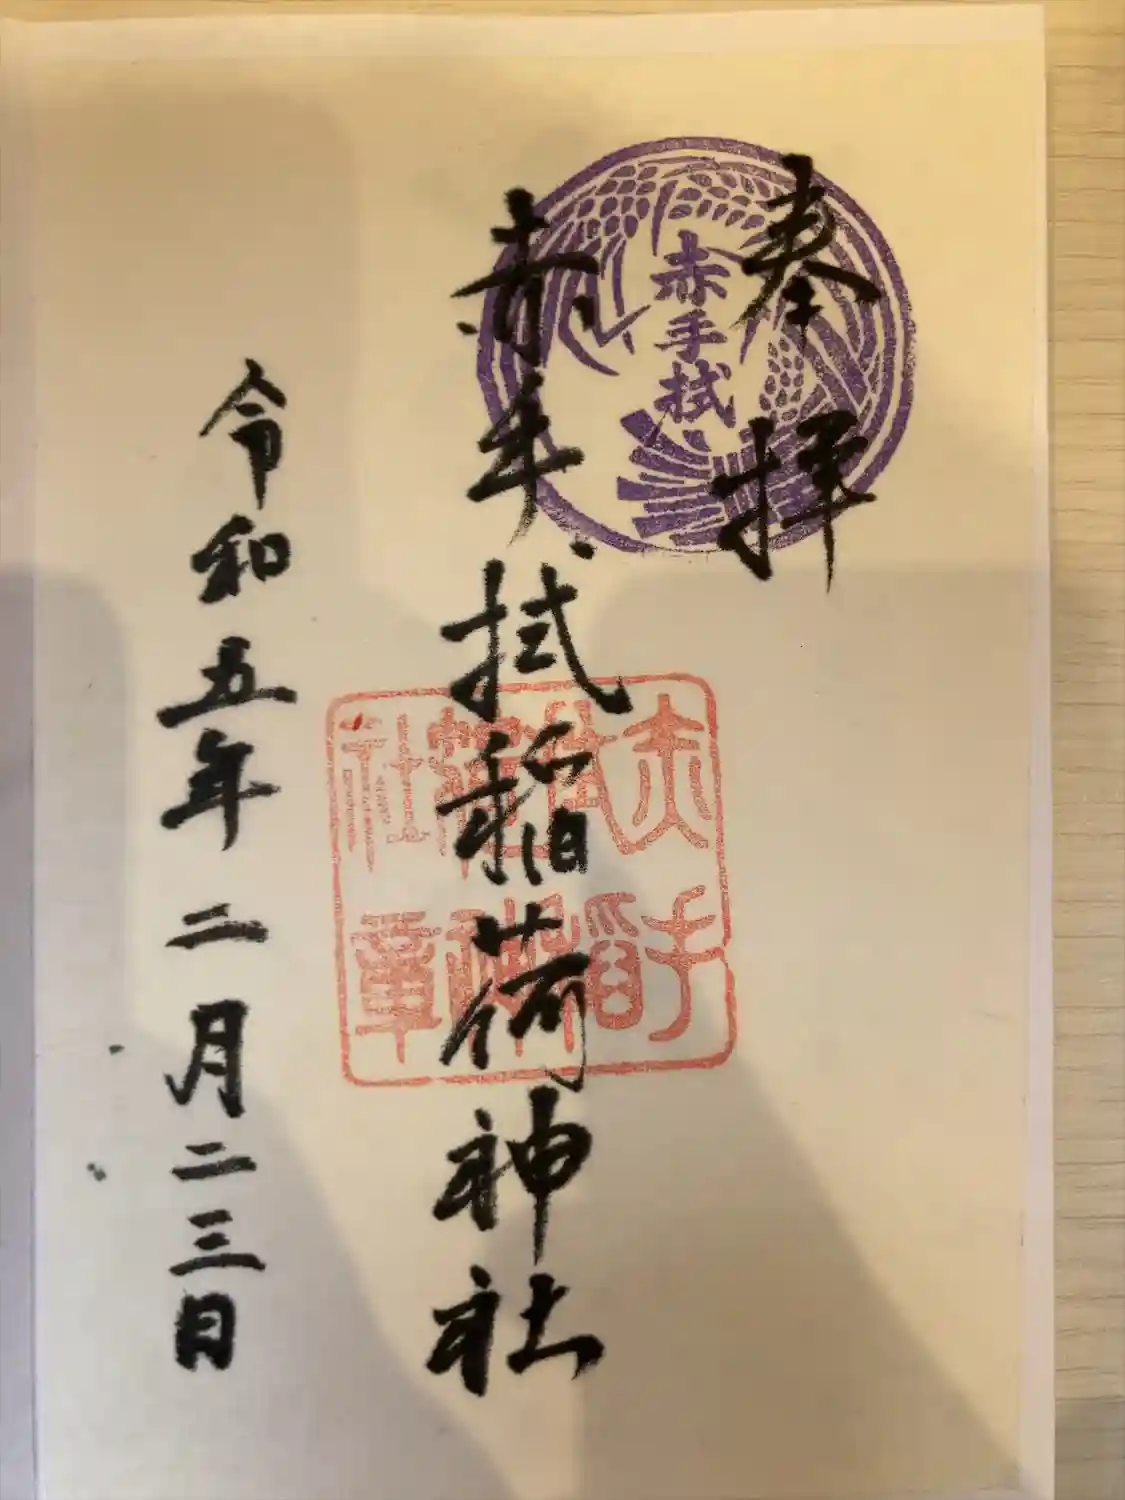 奉拝
赤手拭
赤手拭稲荷神社
赤手拭稲荷神社章
令和五年二月二三日